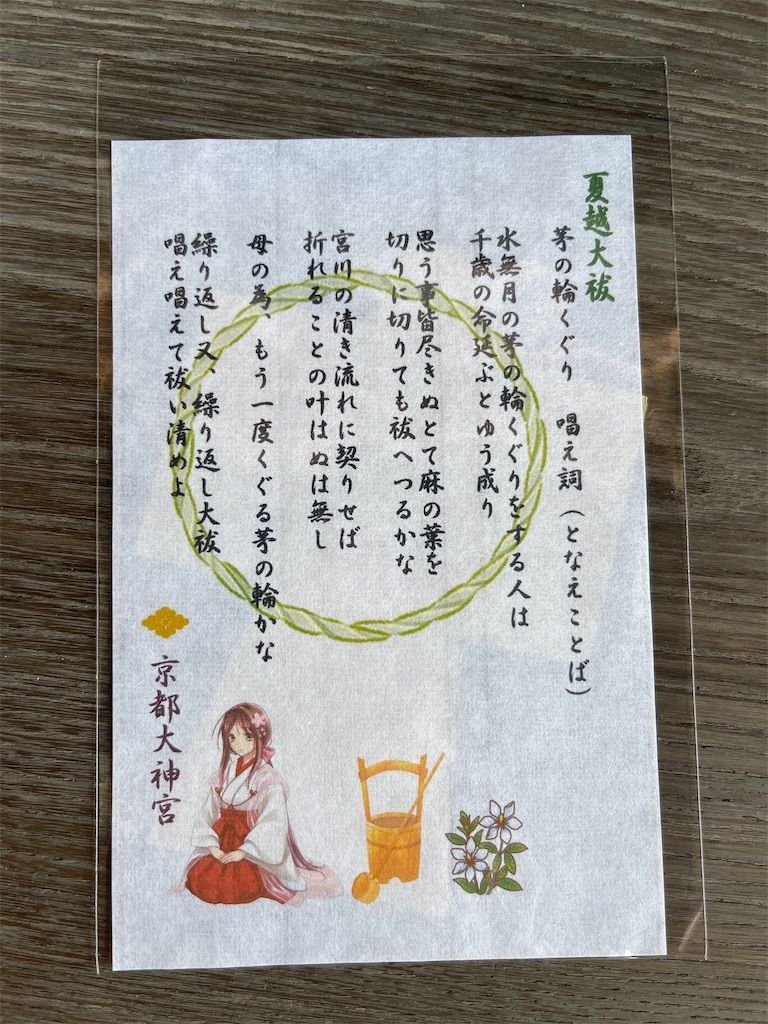 夏越大祓
茅の輪くぐり　唱え詞（となえことば）
水無月の茅の輪くぐりをする人は
千歳の命延ぶとゆう成り
思う事皆尽きぬとて麻の葉を
切りに切りても祓へつるかな
宮川の清き流れに契りせば
折れることの叶はぬは無し
母の為、もう一度くぐる茅の輪かな
繰り返し又、繰り返し大祓
唱え唱えて祓い清めよ
京都大神宮